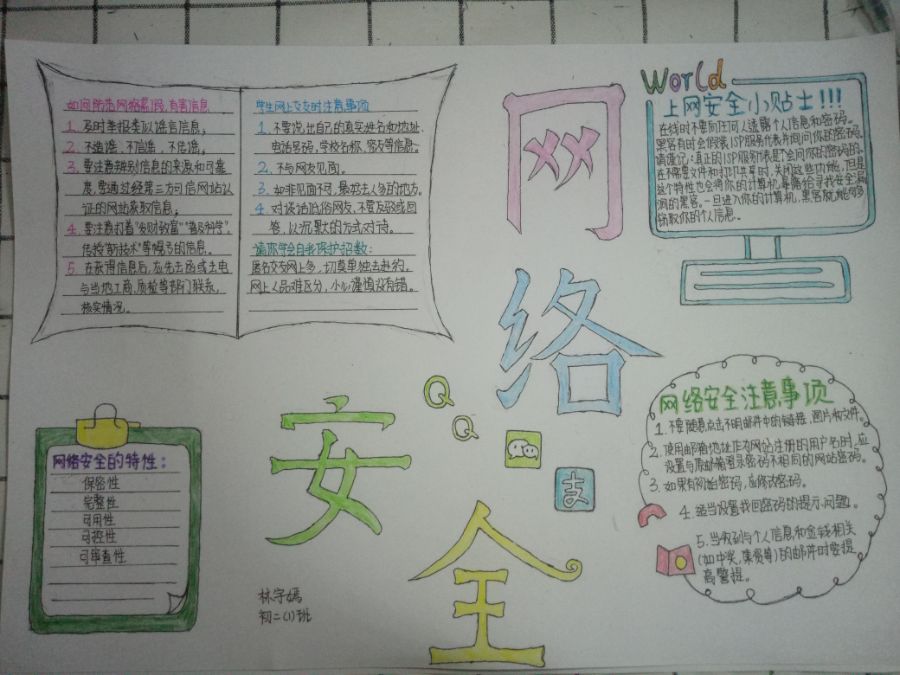 如何防范网络虚假、有害信息
1. 及时举报类似谣言信息；
2. 不造谣，不信谣，不传谣；
3. 要注意辨别信息的来源和可靠
度，要通过经第三方可信网站认
证的网站获取信息；
4. 要注意打着“发财致富”“普及科学”、
传授“新技术”等幌子的信息。
5. 在获得信息后，应先去函或去电
与当地工商、质检等部门联系，
核实情况。
学生网上交友时注意事项
1. 不要说出自己的真实姓名和地址、
电话号码、学校名称、密友等信息。
2. 不与网友见面。
3. 如非见面不可，最好去人多的地方。
4. 对谈话低俗网友，不要反驳或回
答，以沉默的方式对待。
匿名交友网上多，切莫单独去赴约。
网上人品难区分，小心谨慎没有错。
World
上网安全小贴士!!!
在线时不要向任何人透露个人信息和密码。
黑客有时会假装ISP服务代表并询问你的密码。
请谨记：真正的ISP服务代表是不会问你的密码的。
在不需要文件和打印共享时，关闭这些功能，但是
这个特性也会将你的计算机暴露给寻找安全漏
洞的黑客。一旦进入你的计算机，黑客就能够
窃取你的个人信息。
网
络
安
全
Q
Q
支
网络安全的特性：
保密性
完整性
可用性
可控性
可审查性
网络安全注意事项
1. 不要随意点击不明邮件中的链接、图片和文件。
2. 使用邮箱地址作为网站注册的用户名时，应
设置与原邮箱登录密码不相同的网站密码。
3. 如果有初始密码，应修改密码。
4. 适当设置找回密码的提示问题。
5. 当收到与个人信息和金钱相关
(如中奖，集资等)的邮件时要提
高警提。
初二(1)班